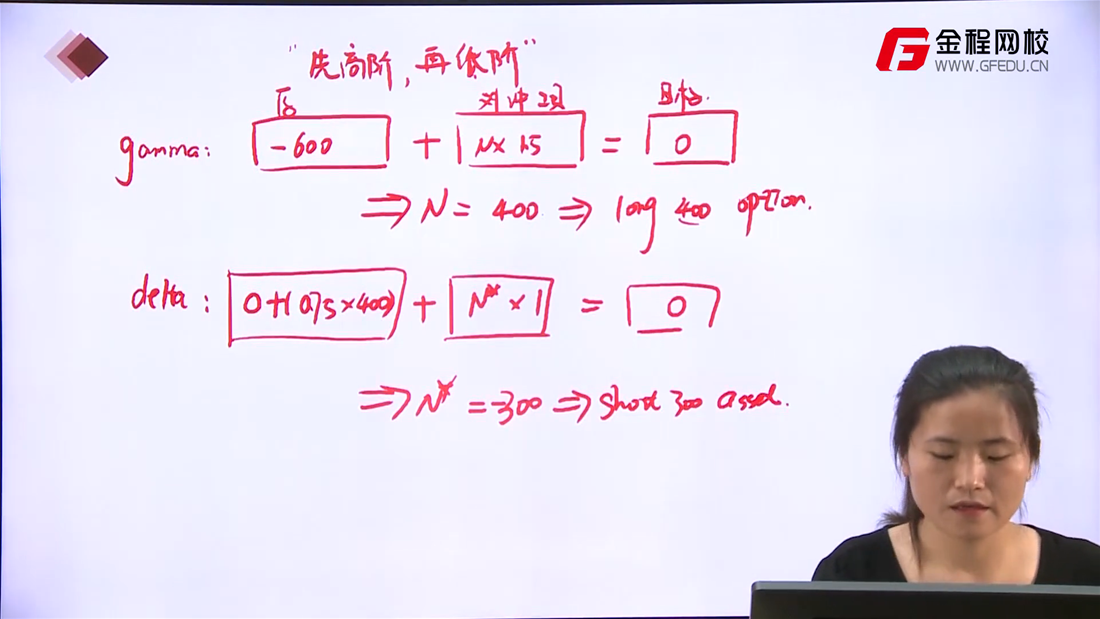 金程网校
WWW.GFEDU.CN
"先高阶,再低阶"
对冲项 目标.
gamma: -600 + N× 1.5 = 0
⇒ N = 400 ⇒ long 400 option.
delta: 0+(0.75×400) + N* × 1 = 0
⇒ N* = -300 ⇒ short 300 asset.